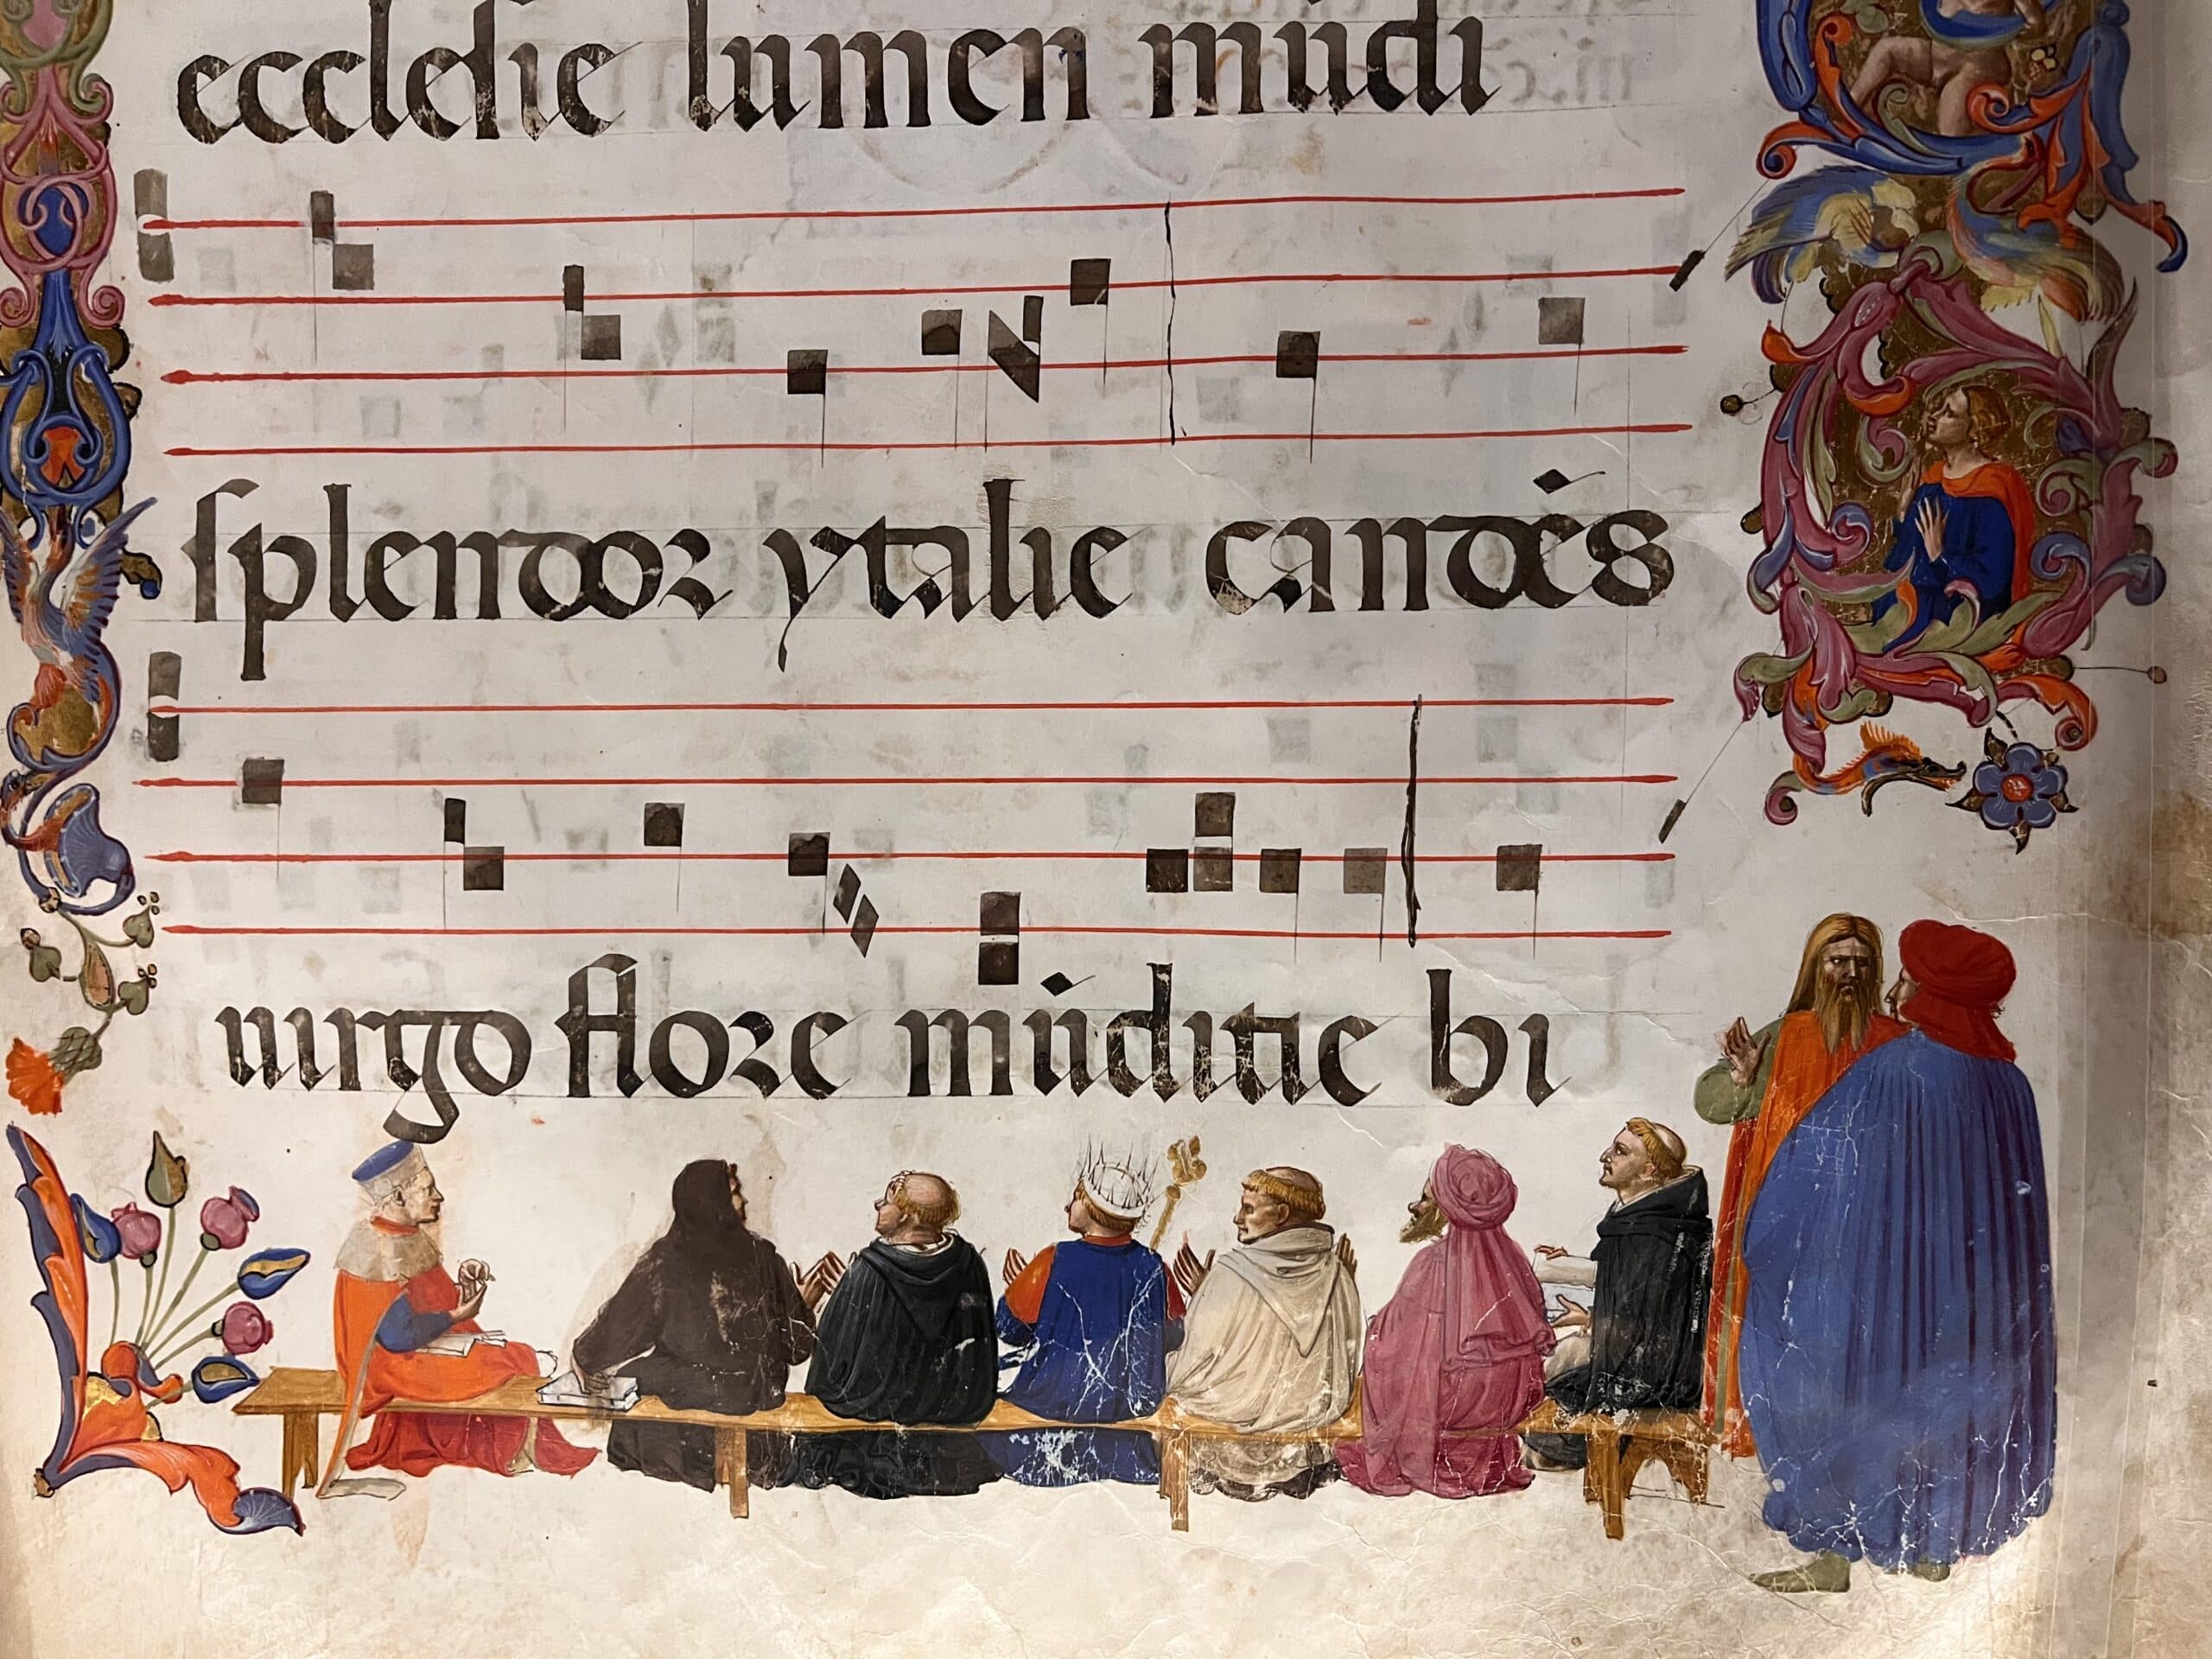 ecclesie lumen mūdi
splendor ytalie candēs
uirgo flore mūditie bi